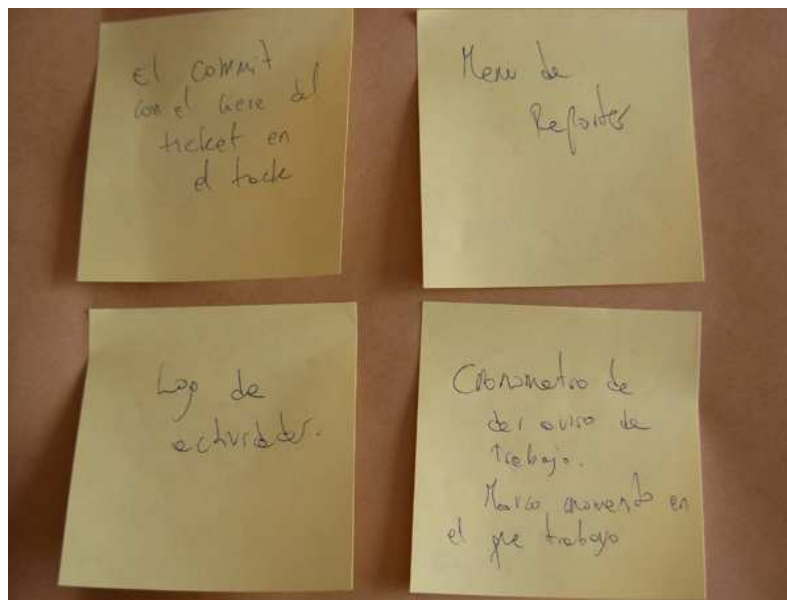 El commit
con el cierre del
ticket en
el track
Menu de
Reportes
Log de
actividades.
Cronometro de
dar aviso de
trabajo.
Marco momento en
el que trabajo